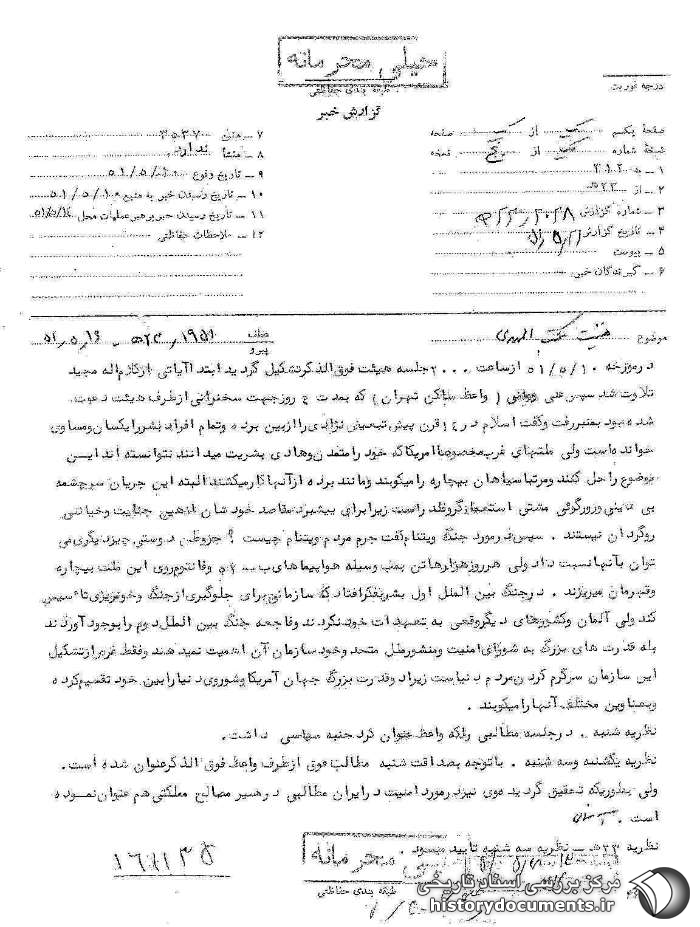 خیلی محرمانه
طبقه بندی حفاظتی
گزارش خبر
درجه فوریت
صفحه یکم یک از یک صفحه
نسخه شماره یک از پنج نسخه
۱ ــ به ۳۱۲
۲ ــ از ۲۲ ه‍
۳ ــ شماره گزارش
۴ ــ تاریخ گزارش
۵ ــ پیوست
۶ ــ گیرندگان خبر
۷ ــ منبع ۳۵۳۷
۸ ــ منشأ ندارد
۹ ــ تاریخ وقوع ۵۱/۵/۱۰
۱۰ ــ تاریخ رسیدن خبر به منبع ۵۱/۵/۱۰
۱۱ ــ تاریخ رسیدن خبر برهبر عملیات محل
۱۲ ــ ملاحظات حفاظتی
موضوع هیئت مکتب المهدی
عطف
پیرو
در مورخه ۵۱/۵/۱۰ از ساعت ۲۰۰۰ جلسه هیئت فوق الذکر تشکیل گردید ابتدا آیاتی از کلام اله مجید
تلاوت شد سپس علی (واعظ ساکن تهران) که بمدت روز جهت سخنرانی از طرف هیئت دعوت
شده بود بمنبر رفت و گفت اسلام در ۱۴ قرن پیش تبعیض نژادی را از بین برده و تمام افراد بشر را یکسان و مساوی
خوانده است ولی ملتهای غرب مخصوصا امریکا که خود را متمدن و هادی بشریت میدانند نتوانسته اند این
موضوع را حل کنند و مرتبا سیاهان بیچاره را میکوبند و مانند برده از آنها کار میکشند البته این جریان سرچشمه
بی دینی و زورگوئی مشتی استعمارگر و قلدر است زیرا برای پیشبرد مقاصد خود شان از هیچ جنایت و خیانتی
روگردان نیستند . سپس در مورد جنگ ویتنام گفت جرم مردم ویتنام چیست ؟ جز وطن دوستی چیز دیگری می
توان بآنها نسبت داد ولی هر روز هزارها تن بمب وسیله هواپیماهای ب ــ ۵۲ و فانتوم روی این ملت بیچاره
و قهرمان میریزند . در جنگ بین الملل اول بشر بفکر افتاد که سازمانی برای جلوگیری از جنگ و خونریزی تاسیس
کند ولی آلمان و کشورهای دیگر وقعی به تعهدات خود نکردند و فاجعه جنگ بین الملل دوم را بوجود آوردند
بله قدرت های بزرگ به شورای امنیت و منشور ملل متحد و خود سازمان آن اهمیت نمیدهند و فقط غرض از تشکیل
این سازمان سرگرم کردن مردم دنیاست زیرا دو قدرت بزرگ جهان آمریکا و شوروی دنیا را بین خود تقسیم کرده
و بعناوین مختلف آنها را میکوبند .
نظریه شنبه . در جلسه مطالبی را که واعظ عنوان کرد جنبه سیاسی داشت .
نظریه یکشنبه و سه شنبه . با توجه بصداقت شنبه مطالب فوق از طرف واعظ فوق الذکر عنوان شده است .
ولی بطوریکه تحقیق گردیده وی نیز در مورد امنیت در ایران مطالبی در مسیر مصالح مملکتی هم عنوان نموده
است .
نظریه ۲۲ ه‍ ــ نظریه سه شنبه تایید میشود .
خیلی محرمانه
طبقه بندی حفاظتی
۱۶۱۱۳۵
مرکز بررسی اسناد تاریخی
historydocuments.ir